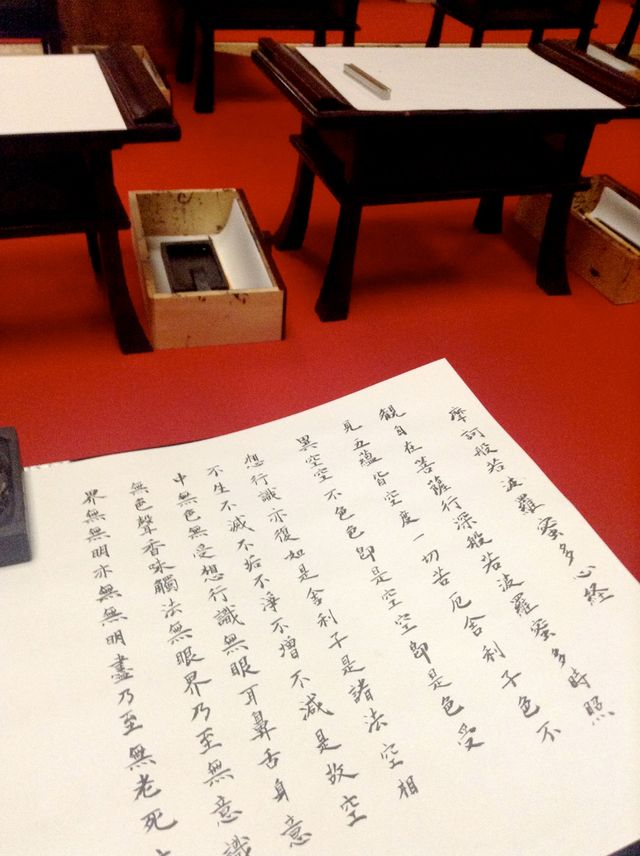 摩訶般若波羅蜜多心経
観自在菩薩行深般若波羅蜜多時照
見五蘊皆空度一切苦厄舎利子色不
異空空不色色即是空空即是色受
想行識亦復如是舎利子是諸法空相
不生不滅不垢不淨不增不減是故空
中無色無受想行識無眼耳鼻舌身意
無色聲香味觸法無眼界乃至無意識
界無無明亦無無明盡乃至無老死